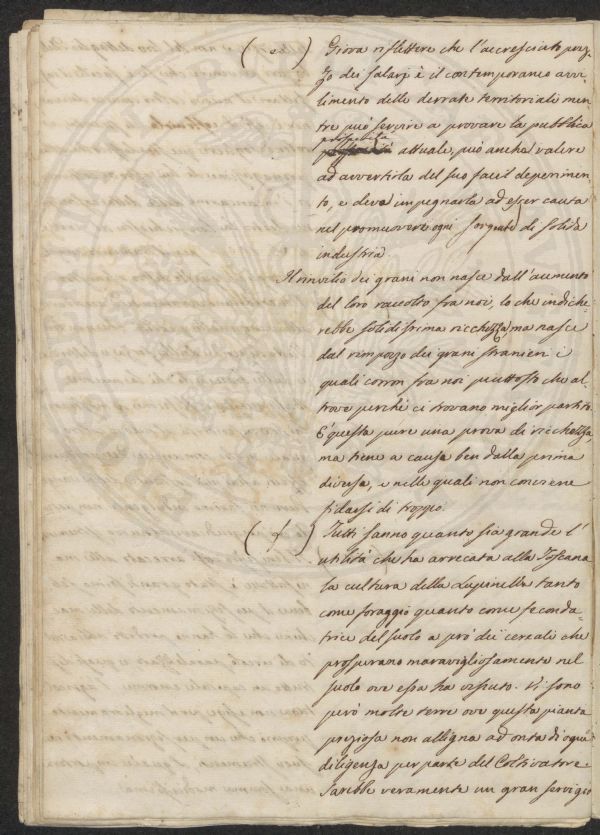 ( e ) Giova riflettere che l'accresciuto prez-
zo dei salarj, è il contemporaneo avvi-
limento delle derrate territoriali men-
tre può servire a provare la pubblica
prosperità
attuale, può anche valere
ad avvertirla del suo facil deperimen-
to, e deve impegnarla ad esser cauta
nel promuovere ogni sorgente di solida
industria
Il rinvilio dei grani non nasce dall'aumento
del loro raccolto fra noi, lo che indiche-
rebbe solidissima ricchezza, ma nasce
dal rimpozzo dei grani stranieri i
quali corron fra noi piuttosto che al-
trove perché ci trovano miglior partito.
È questa pure una prova di ricchezza,
ma tiene a causa ben dalla prima
diversa, e nelle quali non conviene
fidarsi di troppo.
( f ) Tutti sanno quanto sia grande l'
utilità che ha arrecata alla Toscana
la cultura della Lupinella tanto
come foraggio quanto come feconda-
trice del suolo a pro dei cereali che
prosperano maravigliosamente nel
suolo ove essa ha vissuto. Vi sono
però molte terre ove questa pianta
preziosa non alligna ad onta di ogni
diligenza per parte del Coltivatore
Sarebbe veramente un gran servigio